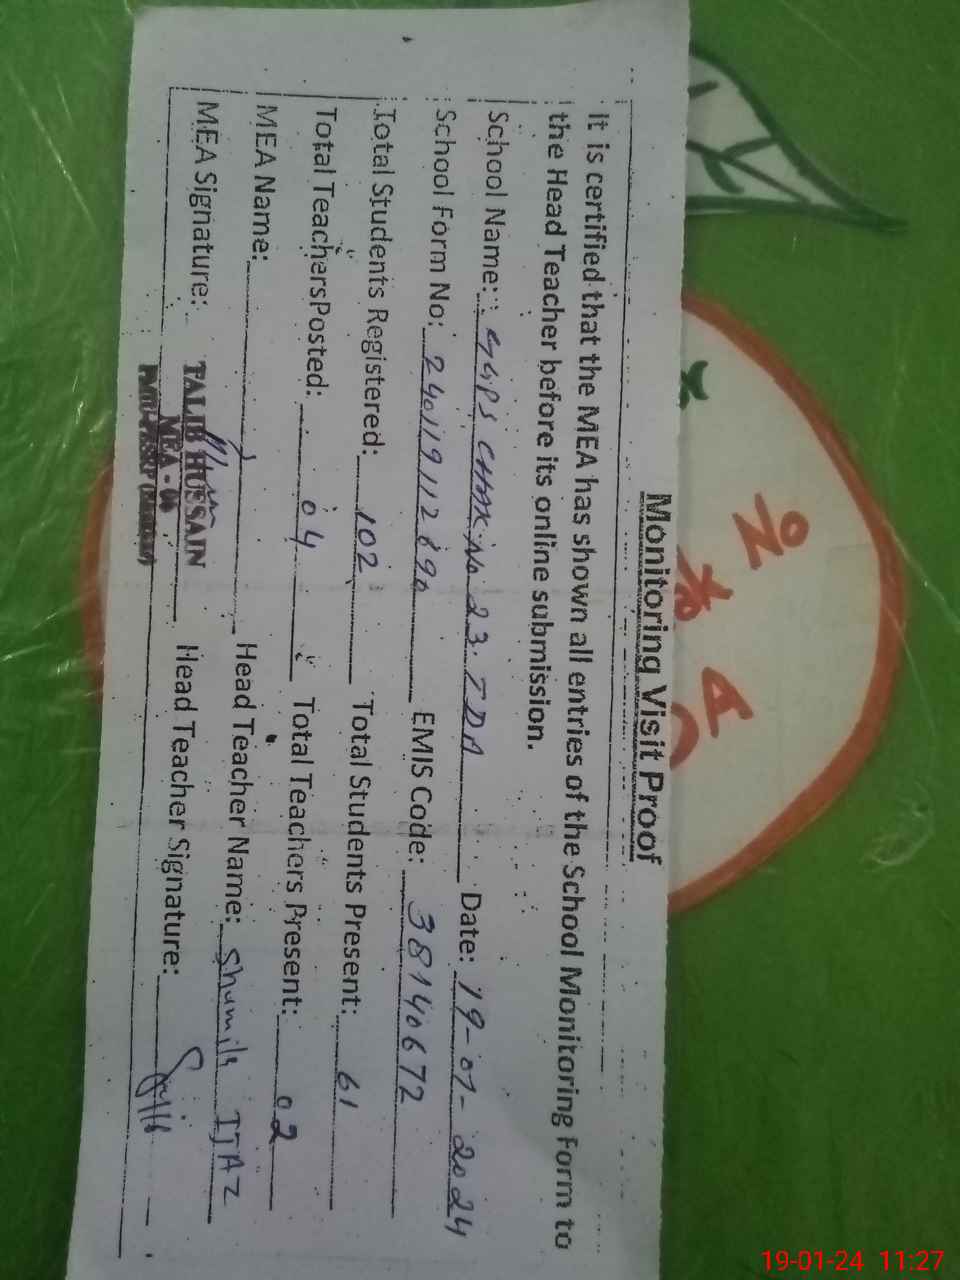 Monitoring Visit Proof
It is certified that the MEA has shown all entries of the School Monitoring Form to
the Head Teacher before its online submission.
School Name: GGPS CHAK No 23. TDA Date: 19-01-2024
School Form No: 240119112890 EMIS Code: 38140672
Total Students Registered: 102 Total Students Present: 61
Total Teachers Posted: 04 Total Teachers Present: 02
MEA Name: Head Teacher Name: Shumila IJAZ
MEA Signature: Head Teacher Signature:
TALIB HUSSAIN
MEA - 06
No
A
19-01-24 11:27